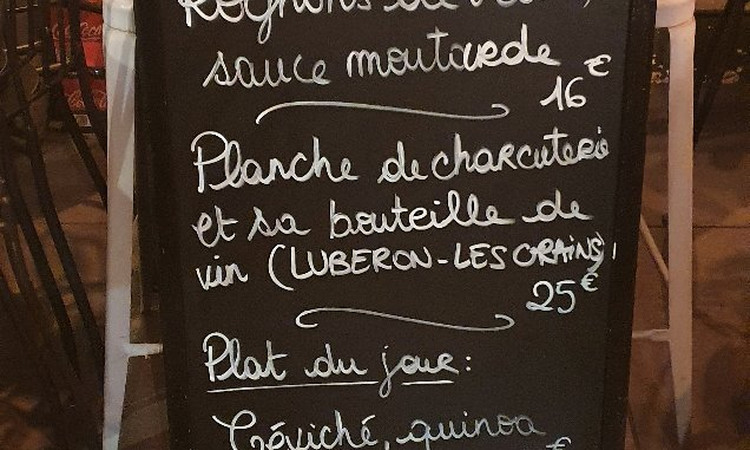 Rognons de veau,
sauce moutarde
16€
Planche de charcuterie
et sa bouteille de
vin (LUBERON-LES GRAINS)
25€
Plat du jour:
Céviché, quinoa
€
Coca-Cola